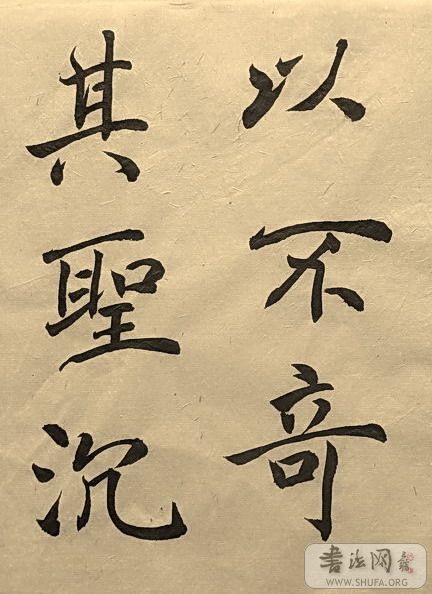 以不奇
其聖沉
書法网
WWW.SHUFA.ORG